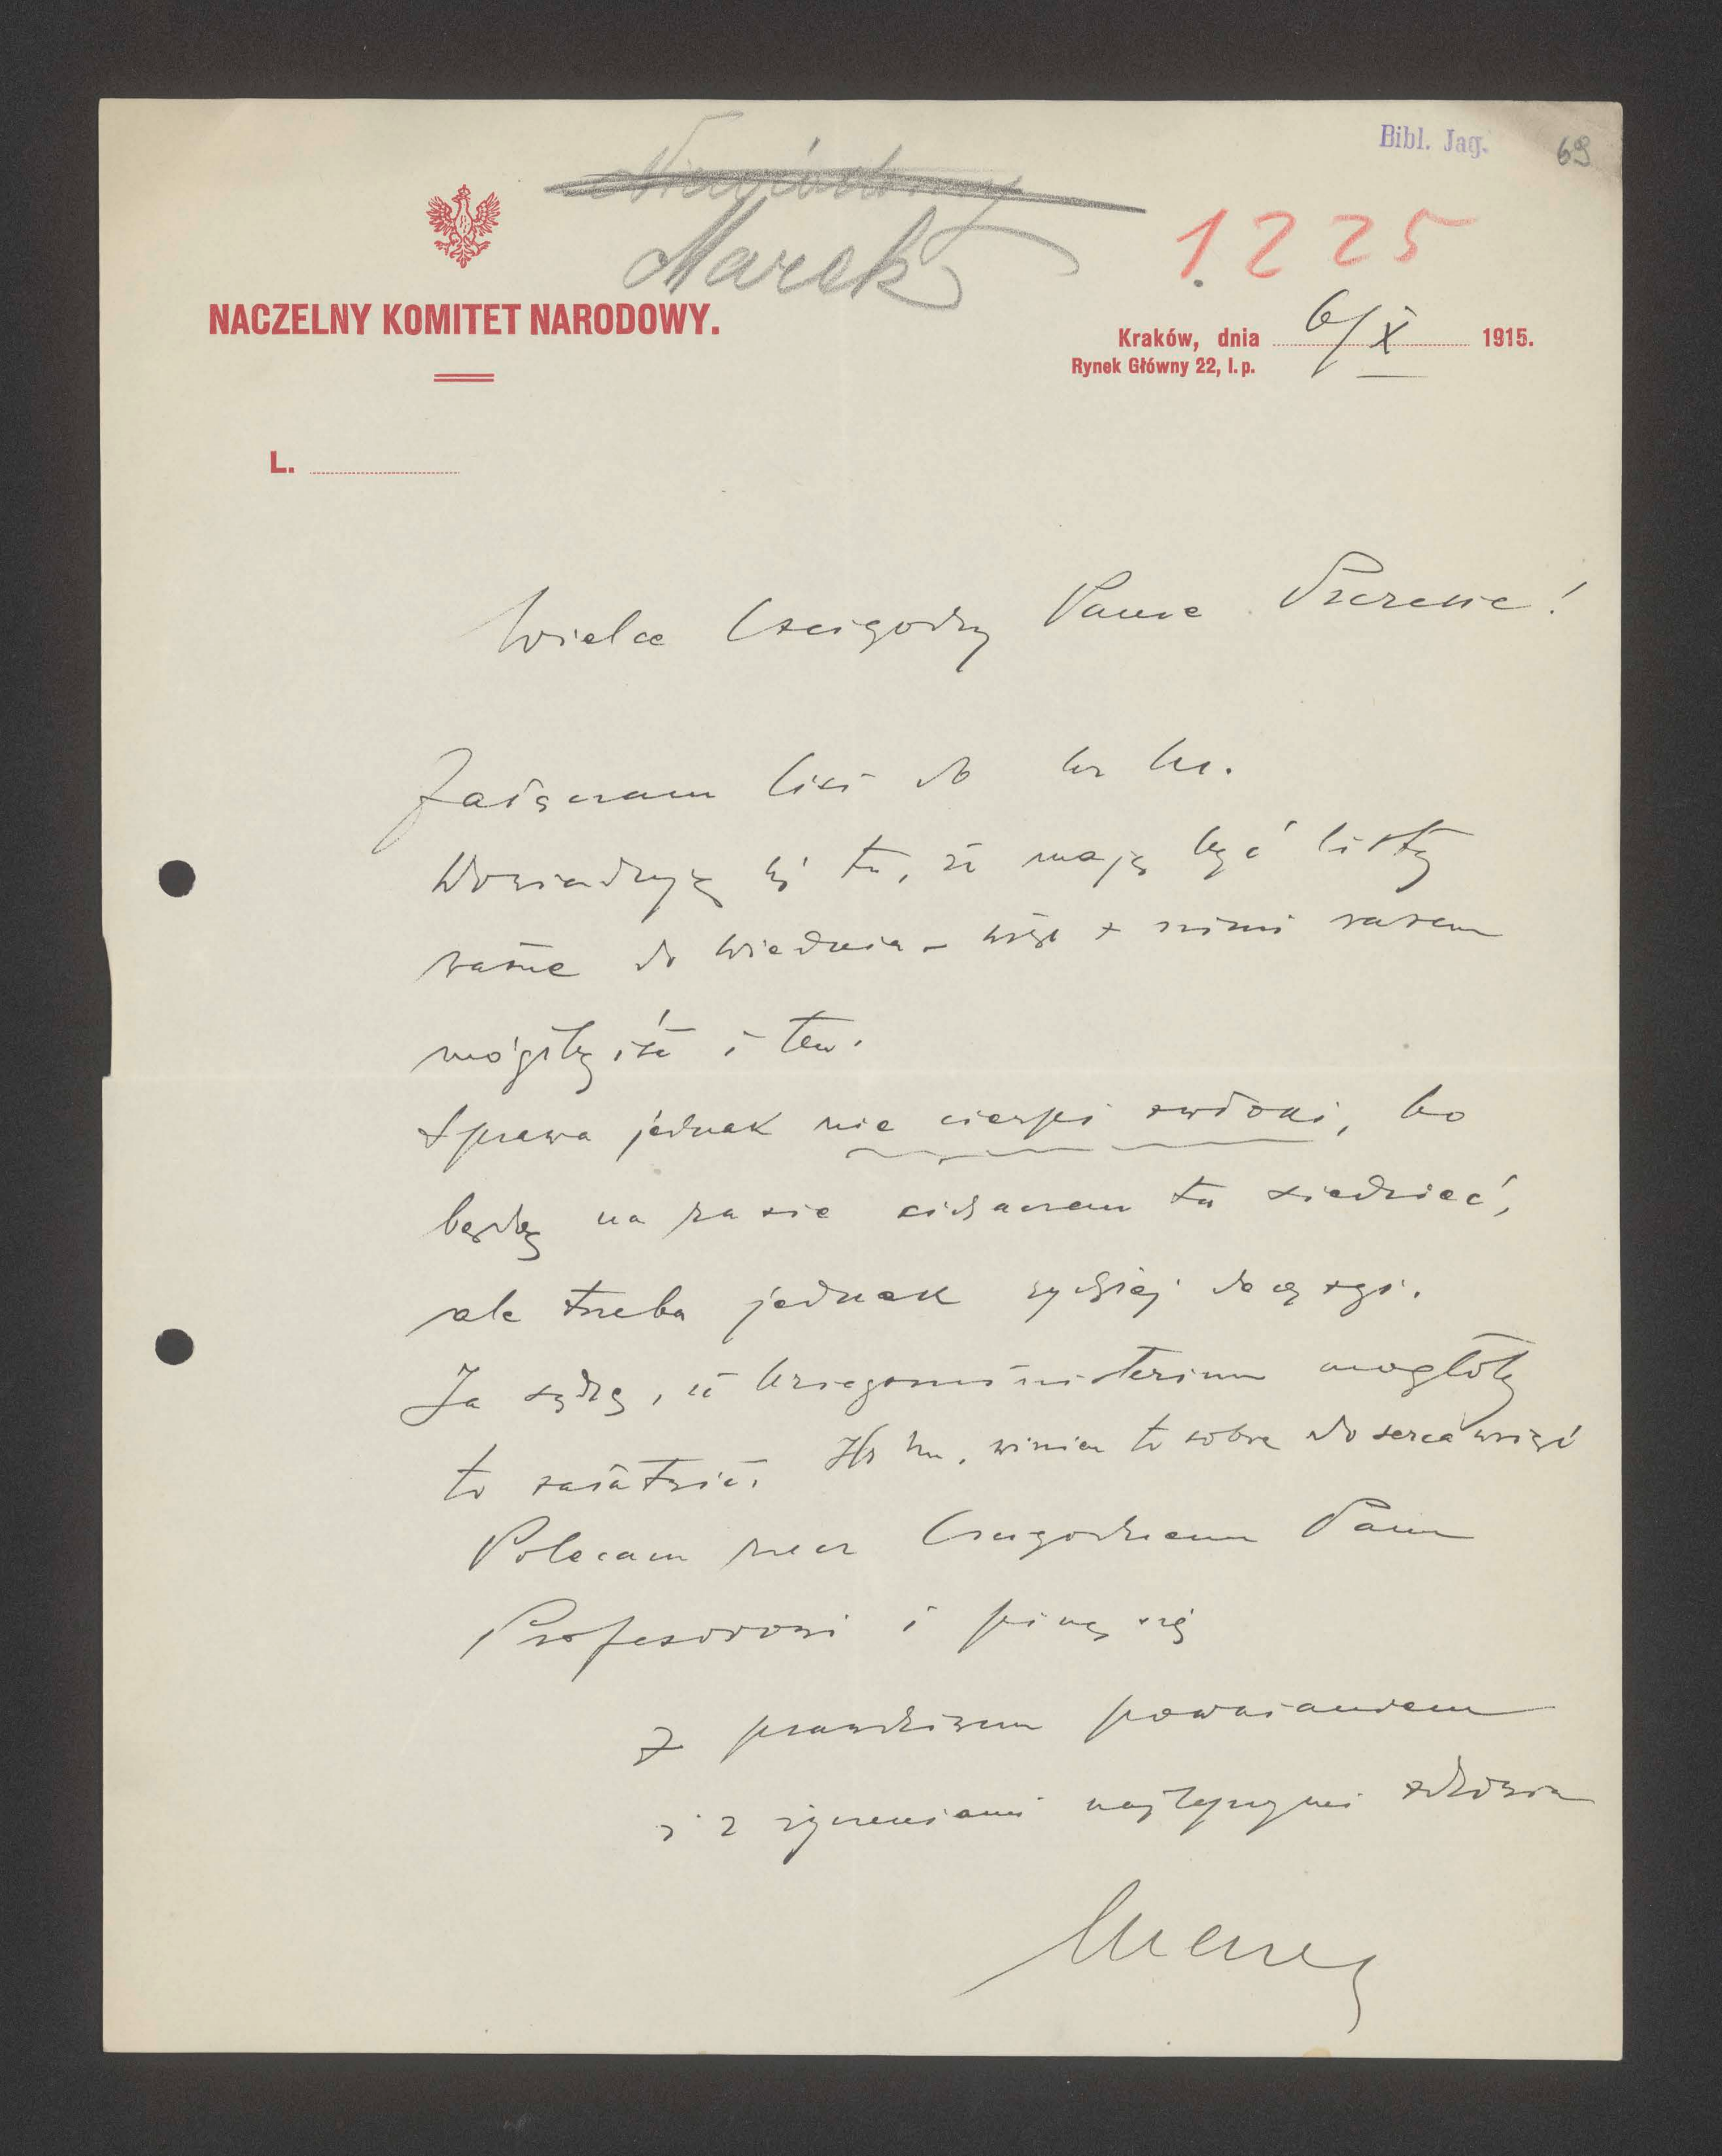 Bibl. Jag.
69
Marek
1225
NACZELNY KOMITET NARODOWY.
Kraków, dnia 6/X 1915.
Rynek Główny 22, I. p.
L.
Wielce Czcigodny Panie Prezesie!
Załączam list do
Dowiaduję się tu, że mają być listy
ważne do Wiednia – więc z nimi razem
mógłby iść i ten.
Sprawa jednak nie cierpi zwłoki, bo
będę na razie tu siedzieć,
ale trzeba jednak decyzyi.
Ja sądzę, że Kriegsministerium mogłoby
to załatwić. winien to sobie do serca wziąć
Polecam rzecz Czcigodnemu Panu
Profesorowi i piszę się
z prawdziwem poważaniem
i z życzeniami najlepszymi zdrowia
Marek